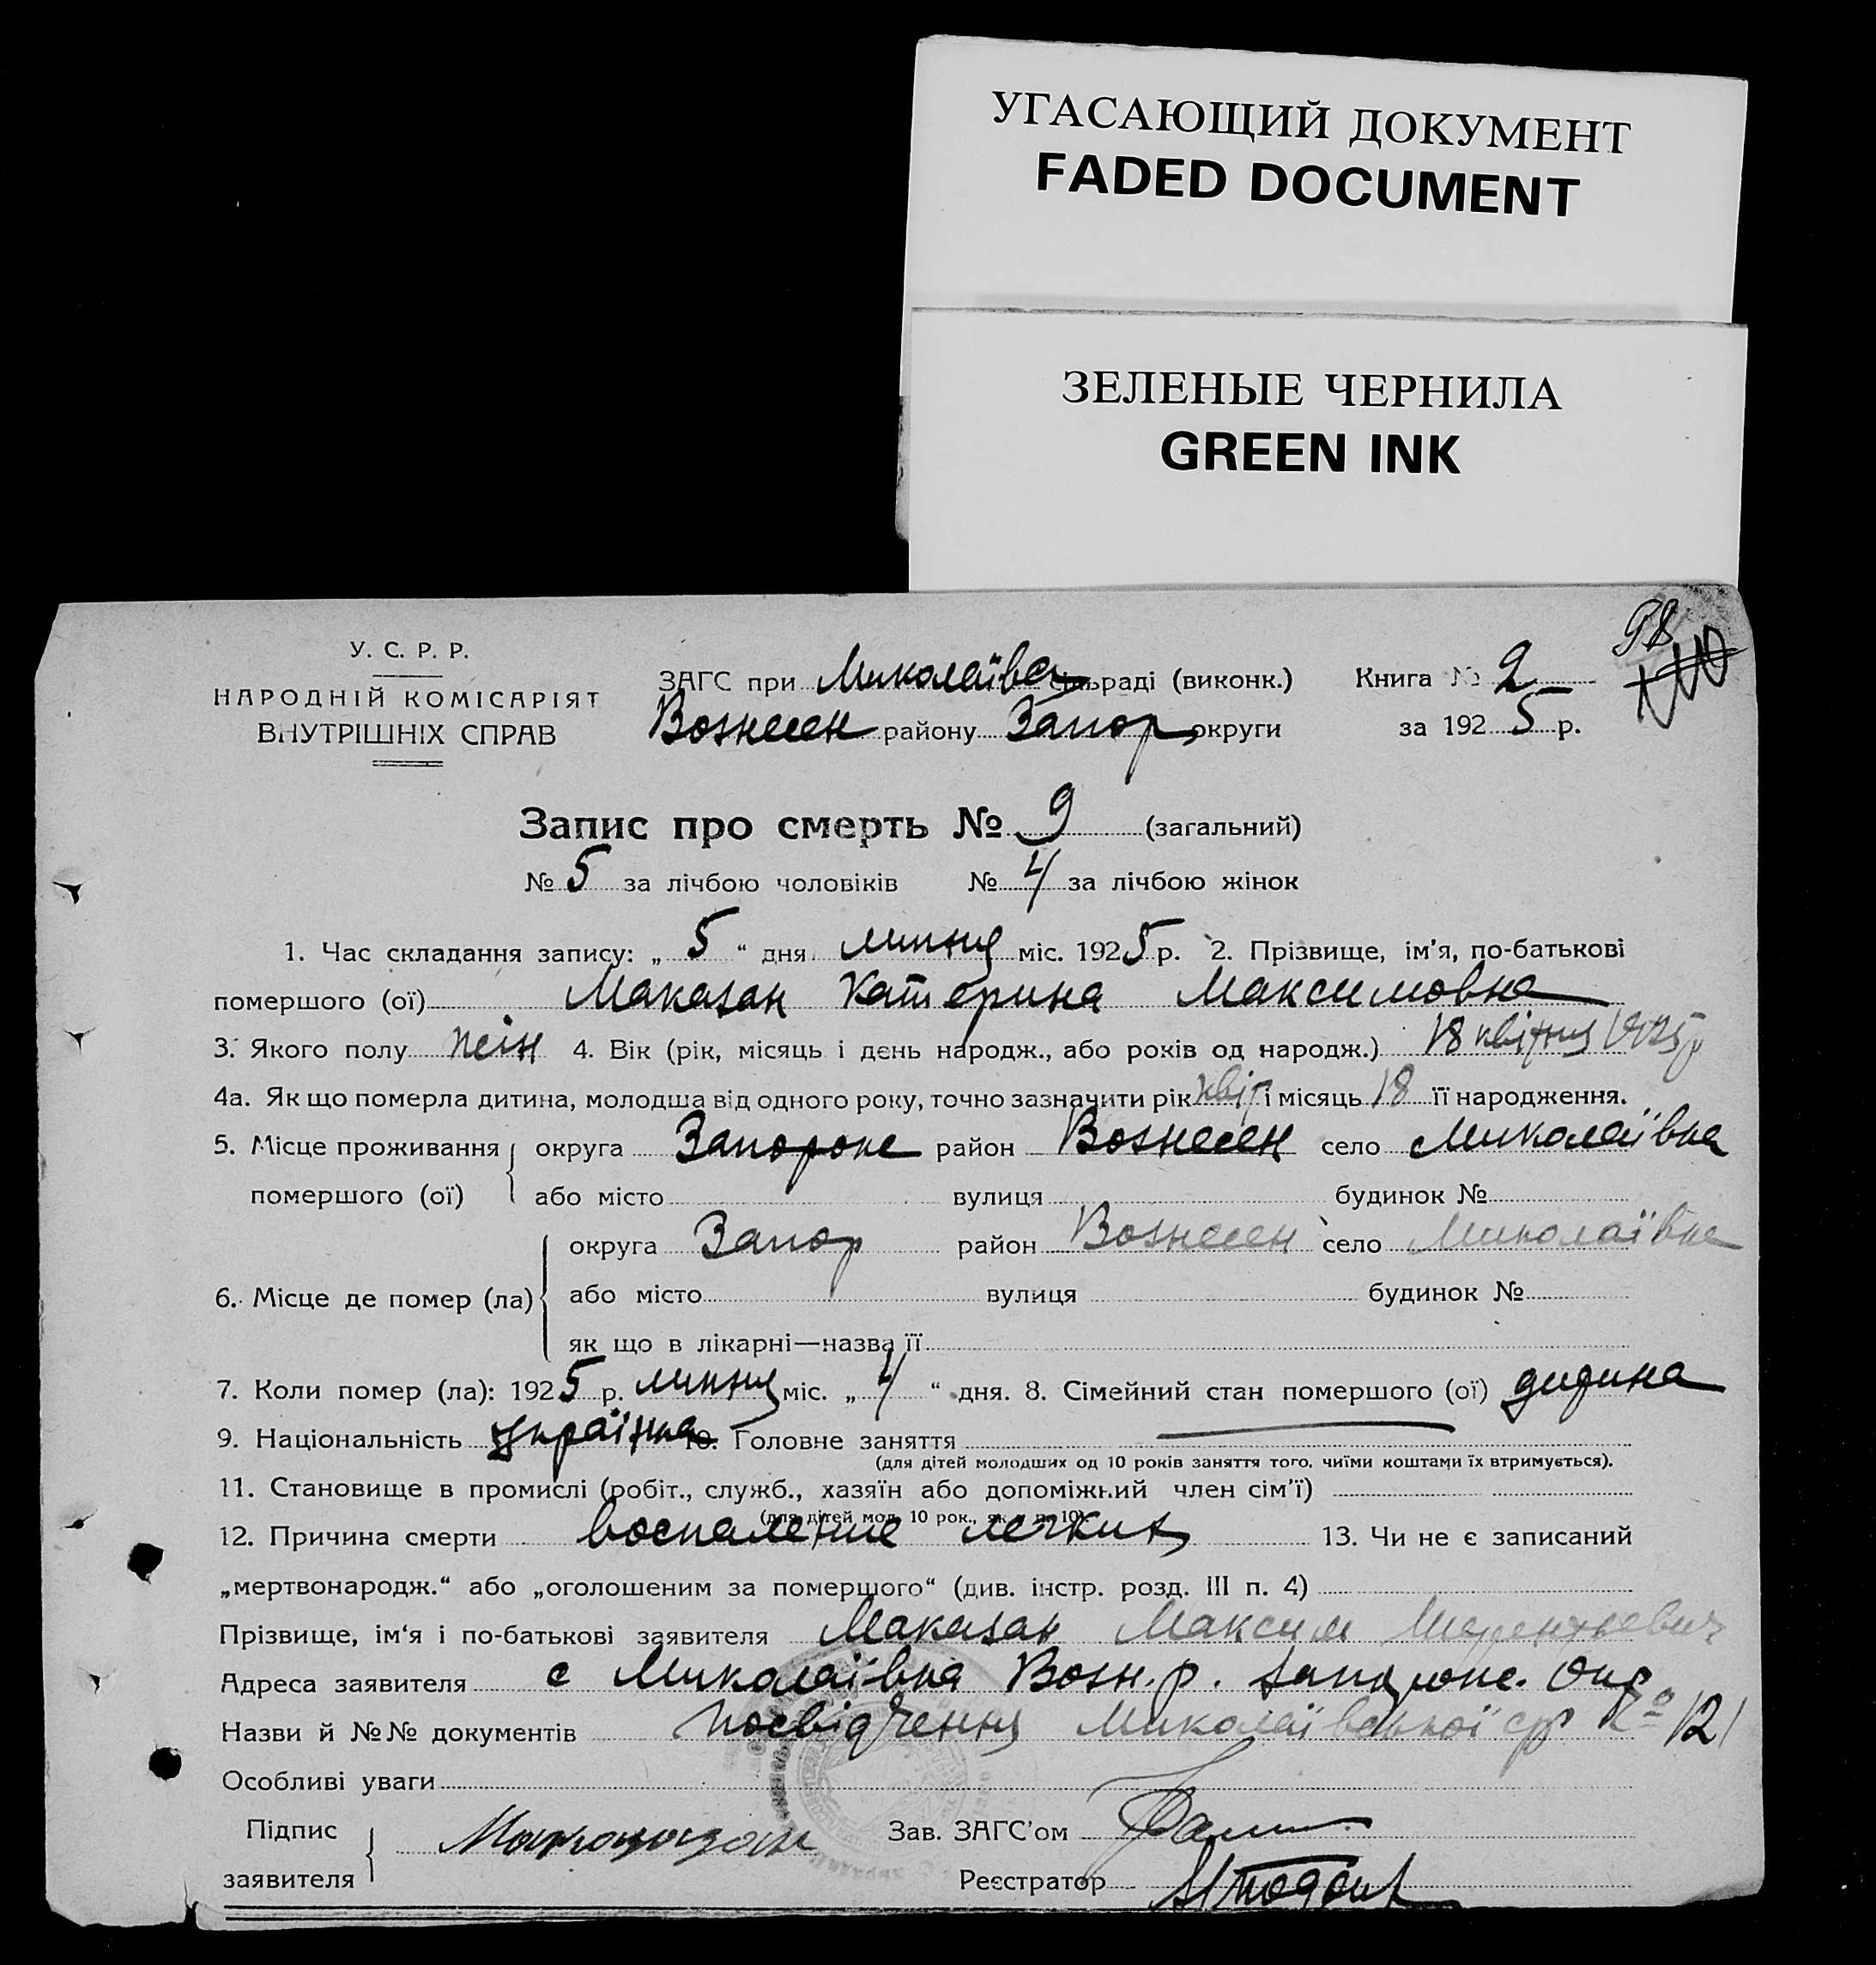 УГАСАЮЩИЙ ДОКУМЕНТ
FADED DOCUMENT
ЗЕЛЕНЫЕ ЧЕРНИЛА
GREEN INK
98
У. С. Р. Р.
НАРОДНІЙ КОМІСАРІЯТ
ВНУТРІШНІХ СПРАВ
ЗАГС при Миколаївськ сільраді (виконк.) Книга № 2
Вознесен району Запор округи за 1925 р.
Запис про смерть № 9 (загальний)
№ 5 за лічбою чоловіків № 4 за лічбою жінок
1. Час складання запису: „5“ дня липня міс. 1925 р. 2. Прізвище, ім'я, по-батькові
помершого (ої) Маказан Катерина Максимовна
3. Якого полу жін 4. Вік (рік, місяць і день народж., або років од народж.) 18 квітня 1925 р
4а. Як що померла дитина, молодша від одного року, точно зазначити рік квіт і місяць 18 її народження.
5. Місце проживання округа Запорож район Вознесен село Миколаївка
помершого (ої) або місто вулиця будинок №
округа Запор район Вознесен село Миколаївка
6. Місце де помер (ла) або місто вулиця будинок №
як що в лікарні—назва її
7. Коли помер (ла): 1925 р. липня міс. „4“ дня. 8. Сімейний стан помершого (ої) дитина
9. Національність Українка 10. Головне заняття
(для дітей молодших од 10 років заняття того, чиїми коштами їх втримується).
11. Становище в промислі (робіт., служб., хазяїн або допоміжний член сім'ї)
(для дітей мол. 10 рок., як в п. 10)
12. Причина смерти воспаление легких 13. Чи не є записаний
„мертвонародж.“ або „оголошеним за помершого“ (див. інстр. розд. III п. 4)
Прізвище, ім'я і по-батькові заявителя Маказан Максим Терентієвич
Адреса заявителя с Миколаївка Возн. р. Запорож. Окр
Назви й №№ документів посвідчення Миколаївської ср № 121
Особливі уваги
Підпис заявителя Зав. ЗАГС'ом
Реєстратор